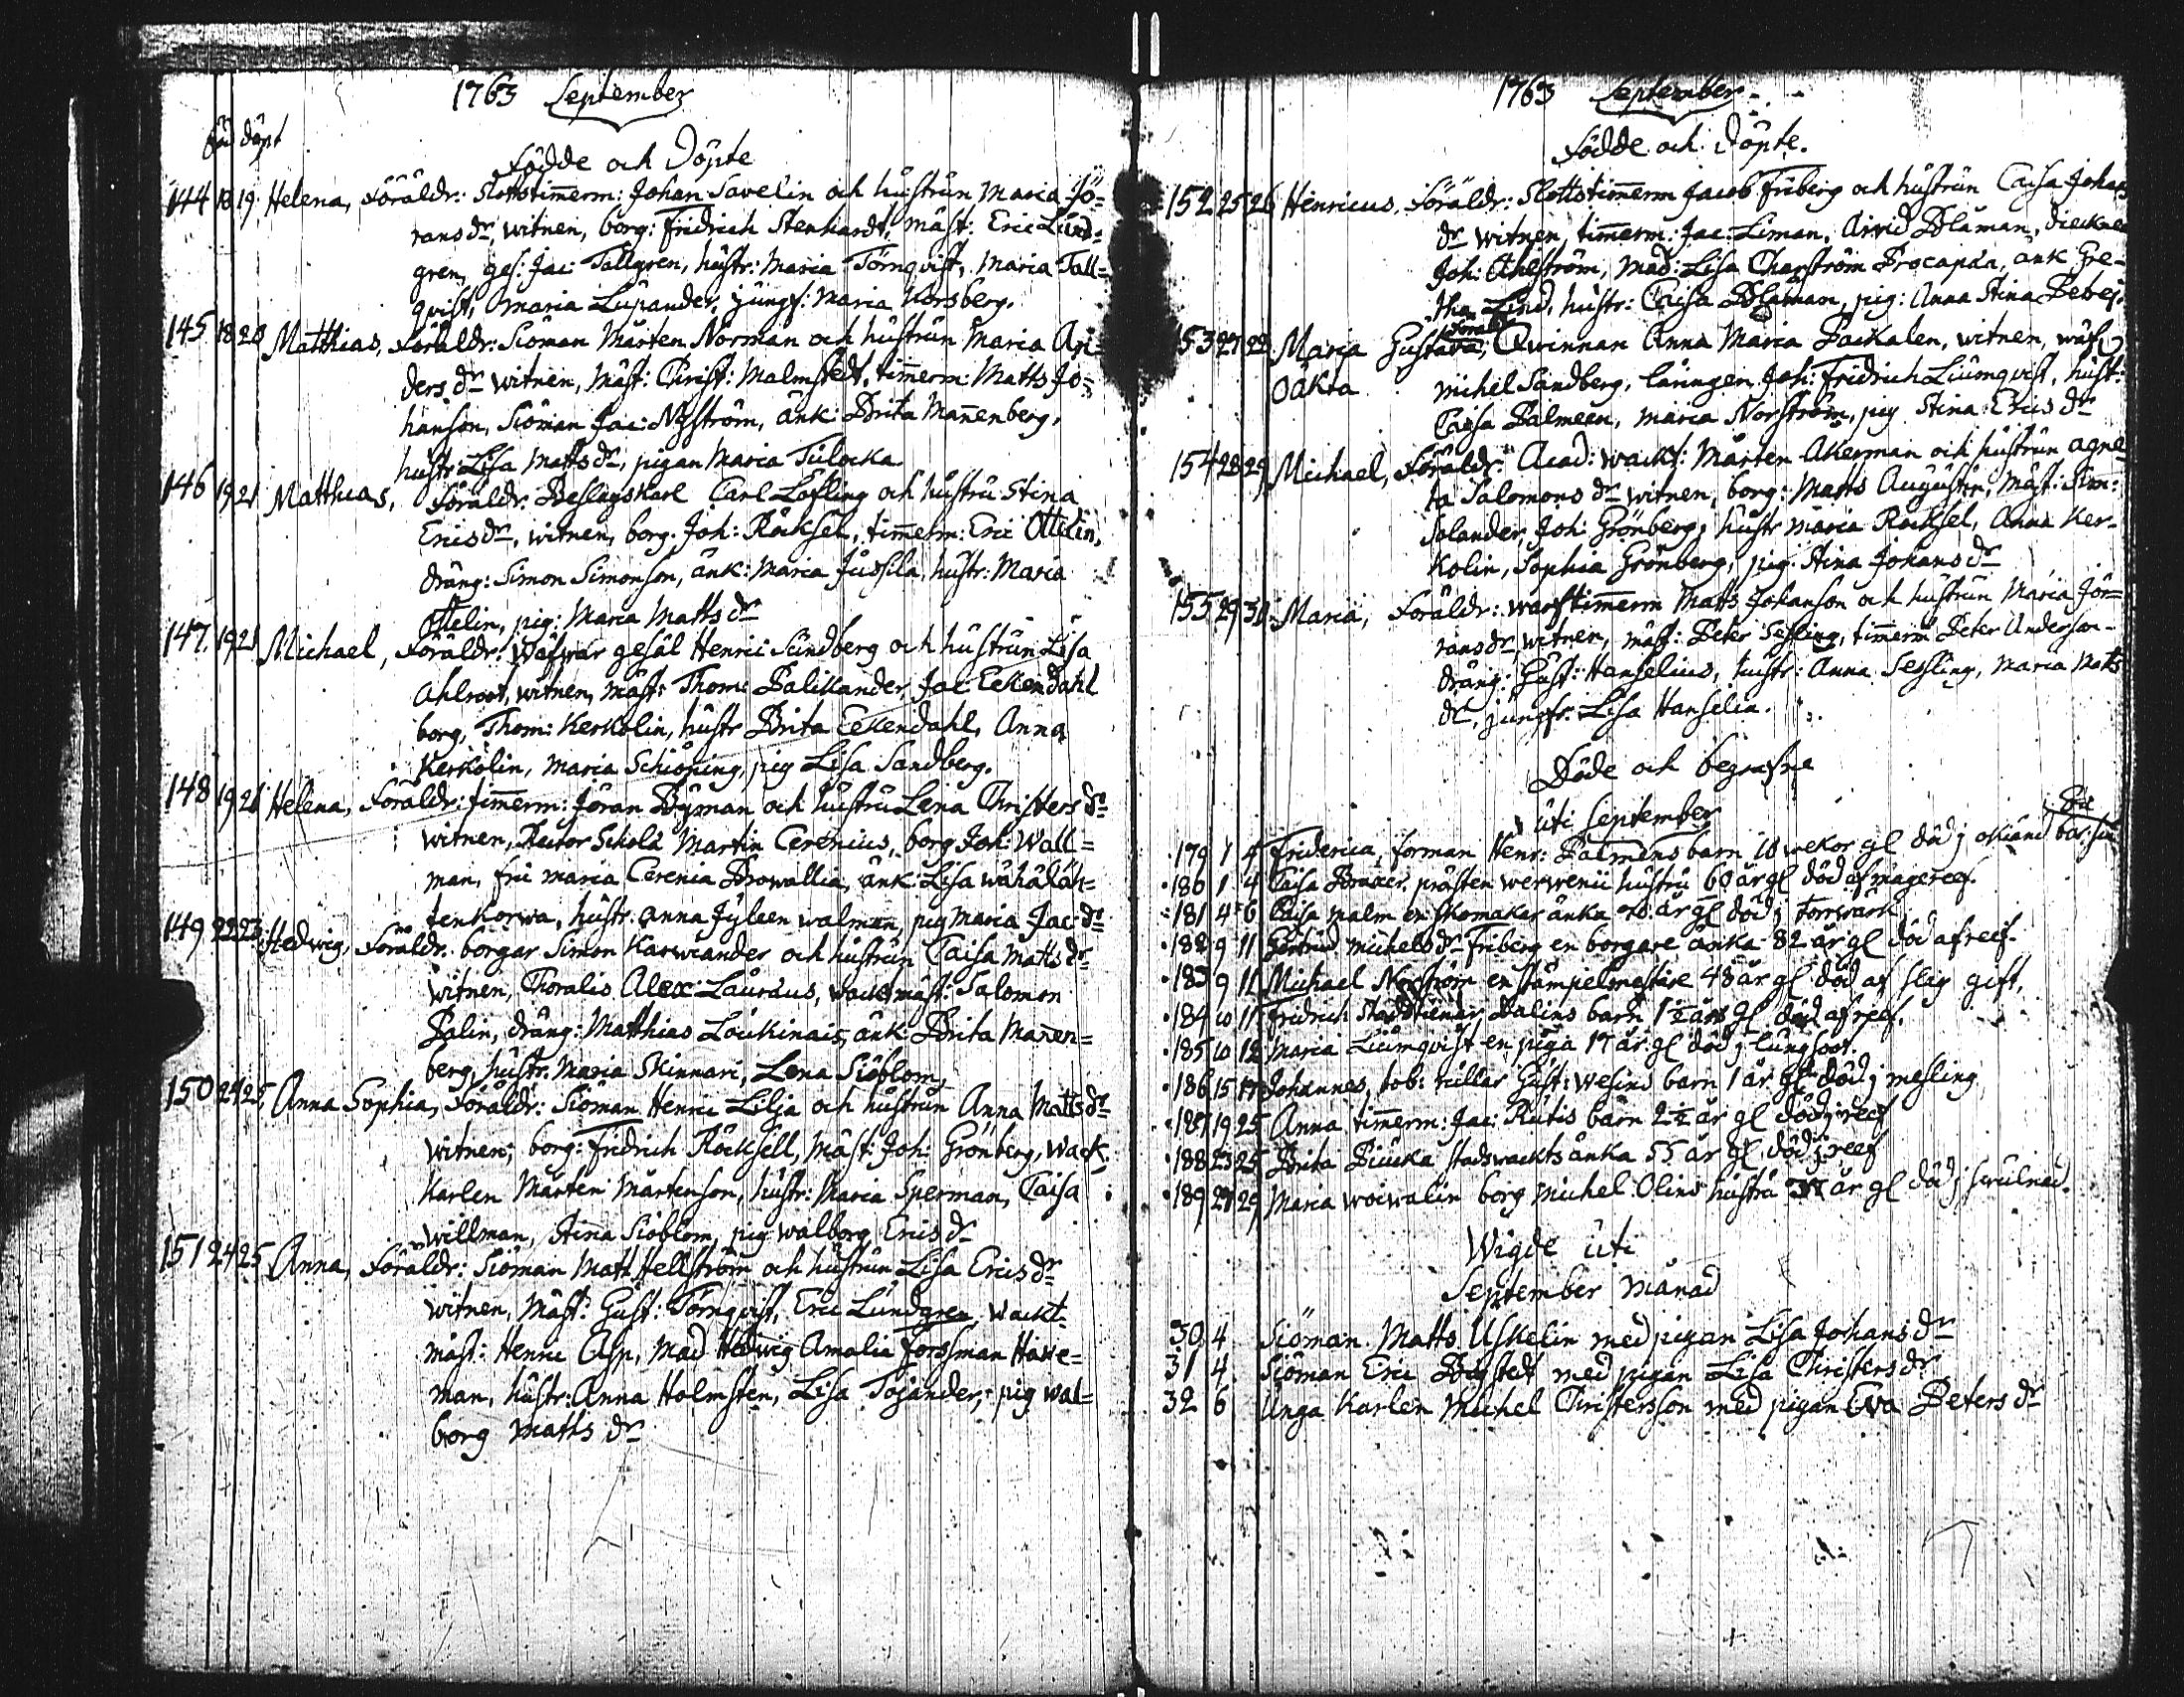 1763 September
föd döpt
Födde och Döpte
144 18 19 Helena, Föräldr: Slottstimerm: Johan Savelin och hustrun Maria Jö=
rans dr, witnen, borg: Fridrich Stenhardt, mäst: Eric Lund=
gren, ges: Jac: Tallgren, hustr: Maria Törnqvist, Maria Tall=
qvist, Maria Lupander, jungf: Maria Korsberg.
145 18 20 Matthias, Föräldr: Siöman Mårten Norman och hustrun Maria An
ders dr witnen, Mäst: Christ: Malmstedt, timerm: Matts Jo=
hanson, Siöman Jac: Nyström, änk: Brita Manenberg,
hustr: Lisa Matts dr, pigan Maria Tulocka
146 19 21 Matthias, Föräldr: Beslagskarl Carl Lofling och hustru Stina
Erics dr, witnen, borg: Joh: Röcksel, timerm: Eric Ottelin,
dräng: Simon Simonson, änk: Maria Judsila, hustr: Maria
Ottelin, pig: Maria Matts dr
147. 19 21 Michael, Föräldr: Wäfwar gesäl Henric Sundberg och hustrun Lisa
Ahlroot, witnen, mäst: Thom: Palikander, Jac: Eckendahl
borg, Thom: Kerkolin, hustr Brita Eckendahl, Anna
Kerkolin, Maria Schiöping, pig Lisa Sandberg.
148 19 21 Helena, Föräldr: timerm: Jöran Byman och hustru Lena Christers dr
witnen, Rector Schola Martin Cerenius, borg Joh: Wall=
man, fru Maria Cerenia Browallia, änk: Lisa wähälän=
tenkorwa, hustr: Anna Jyleen walman, pig Maria Jac: dr
149 22 23 Hedwig, Föräldr: borgar Simon Karwiander och hustrun Caisa Matts dr
witnen, Choralis Alex: Lauraus, wacktmäst: Salomon
Palin, dräng: Matthias Loukinais, änk Brita Manen=
berg, hustr: Maria Skinnari, Lena Siöblom,
150 24 25 Anna Sophia, Föräldr: Siöman Henric Lilja och hustrun Anna Matts dr
witnen; borg: Fridrich Röcksell, Mäst: Joh: Grönberg, Wack
Karlen Mårten Mårtenson, hustr: Maria Sperman, Caisa
Willman, Stina Siöblom, pig walborg Erics dr
151 24 25 Anna, Föräldr: Siöman Mats Hellström och hustrun Lisa Erics dr
witnen, Mäst: Gust: Törnqvist, Eric Lundgren, Wackt=
mäst: Henric Asp, Mad Hedwig Amalia Forssman Hawe=
man, hustr: Anna Holmsten, Lisa Tojander, pig wal=
borg Matts dr
1763 September
Födde och Döpte.
152 25 26 Henricus, Föräldr: Slottstimerm Jacob Friberg och hustrun Caisa Johans
dr witnen, timerm: Jac: Liman, Arvid Blåman, Dieknen
Joh: Ahlström, Mad: Lisa Charström Procapäa, änk Gre=
tha Lind, hustr: Caisa Blåman, pig: Anna Stina
153 27 28 Maria Gustava, Föräldr Qwinnan Anna Maria Packalen, witnen, wäf
Oäkta Michel Sandberg, läringen Joh: Fridrich Liumqvist, hust:
Caisa Palmeen, Maria Norström, pig Stina Erics dr
154 28 29 Michael, Föräldr: Acad: wackt: Mårten Åkerman och hustrun Agne
ta Salomons dr witnen, borg: Matts Augustin, Mäst: Sim:
Solander, Joh: Grönberg, hustr Maria Röcksel, Anna Ker=
kolin, Sophia Grönberg, pig: Stina Johans dr
155 29 30 Maria, Föräldr: warfstimerm Matts Johanson och hustrun Maria Jör=
rans dr, witnen, mäst: Peter Sessling, timerm Peter Anderson
dräng: Gust: Hanselius, hustr: Anna Sessling, Maria Matts
dr, jungfr: Lisa Hanselia.
Döde och begrafne
uti September
179 1 4 Fridericia, forman Henr: Palmens barn 10 wekor gl död j okiänd bar:siu
180 1 4 Caisa prästen werwenii hustru 60 år gl död af mageref.
181 4 6 Caisa Malm en skomakar änka 70 år gl död j Torrwärk
182 9 11 Gertrud Michels dr Friberg en borgare änka 82 år gl död af reef.
183 9 11 Michael Norström en Stämpelmästare 48 år gl död af slag gift,
184 10 11 Fridrich Stadstienar Dalins barn 1 1/2 års gl död af reef.
185 10 12 Maria Liumqvist en piga 17 år gl död j lungsoot.
186 15 17 Johannes, tob: rullar Gust: Wesins barn 1 år gl död j mesling
187 19 25 Anna timerm: Jac: Rutis barn 2 1/2 år gl död j reef
188 23 25 Brita Piucka stadswackts änka 55 år gl död j reef
189 27 29 Maria Woiwalin borg Michel Olins hustru år gl död j swulnad.
Wigde uti
September Månad
30 4 Siöman Matts Uskelin med pigan Lisa Johans dr
31 4 Siöman Eric Bystedt med pigan Lisa Christers dr
32 6 Unga Karlen Michel Christersson med pigan Eva Peters dr